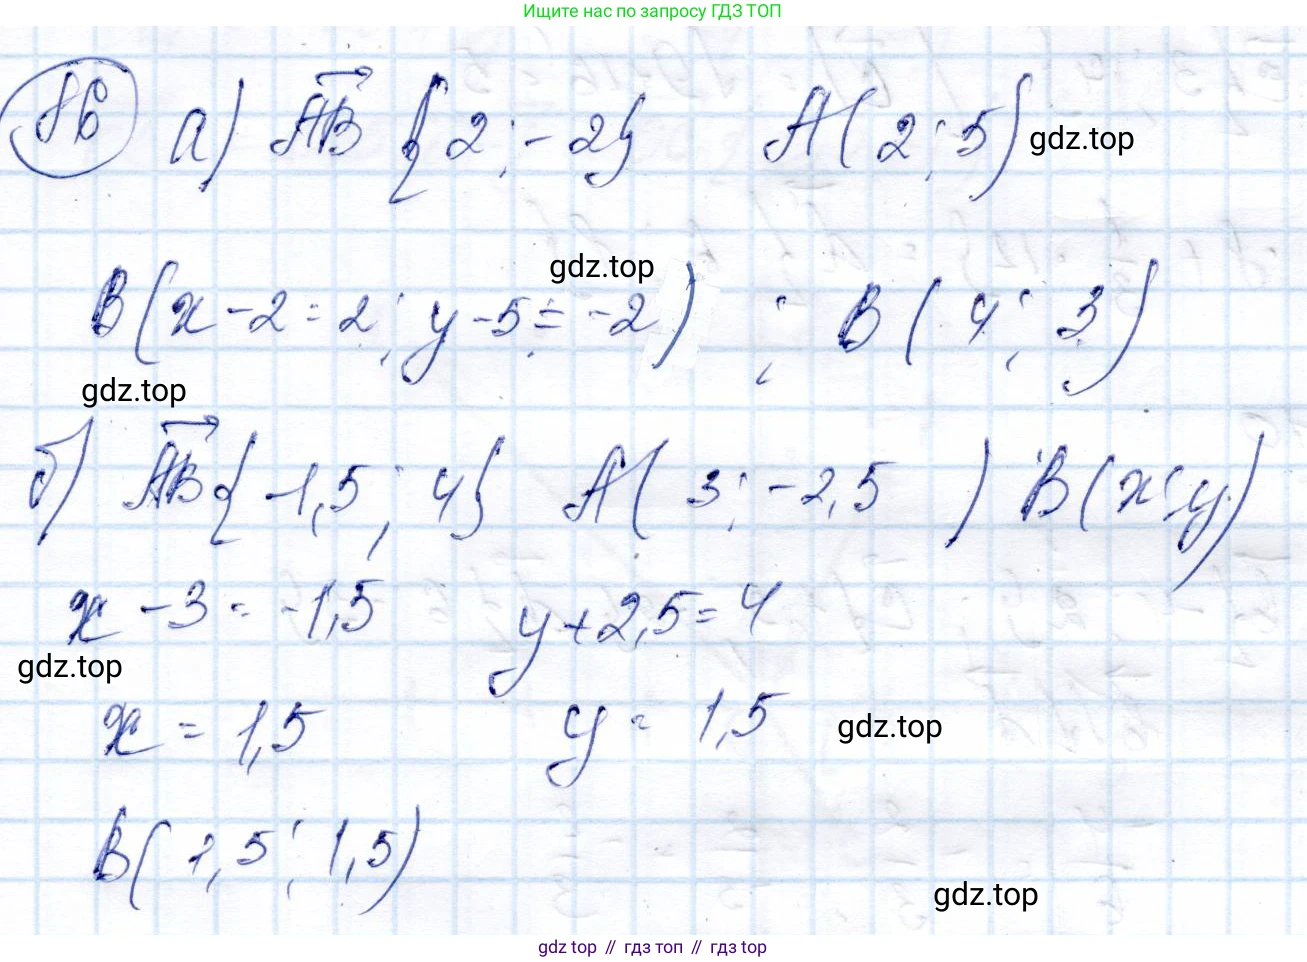 Ищите нас по запросу ГДЗ ТОП
86 а) AB {2; -2} A(2; 5) gdz.top
gdz.top
B(x - 2 = 2; y - 5 = -2) ; B(4; 3)
gdz.top
б) AB {-1,5; 4} A(3; -2,5) B(x; y)
x - 3 = -1,5 y + 2,5 = 4
gdz.top
x = 1,5 y = 1,5 gdz.top
B(1,5; 1,5)
gdz.top
gdz top // гдз топ // гдз top